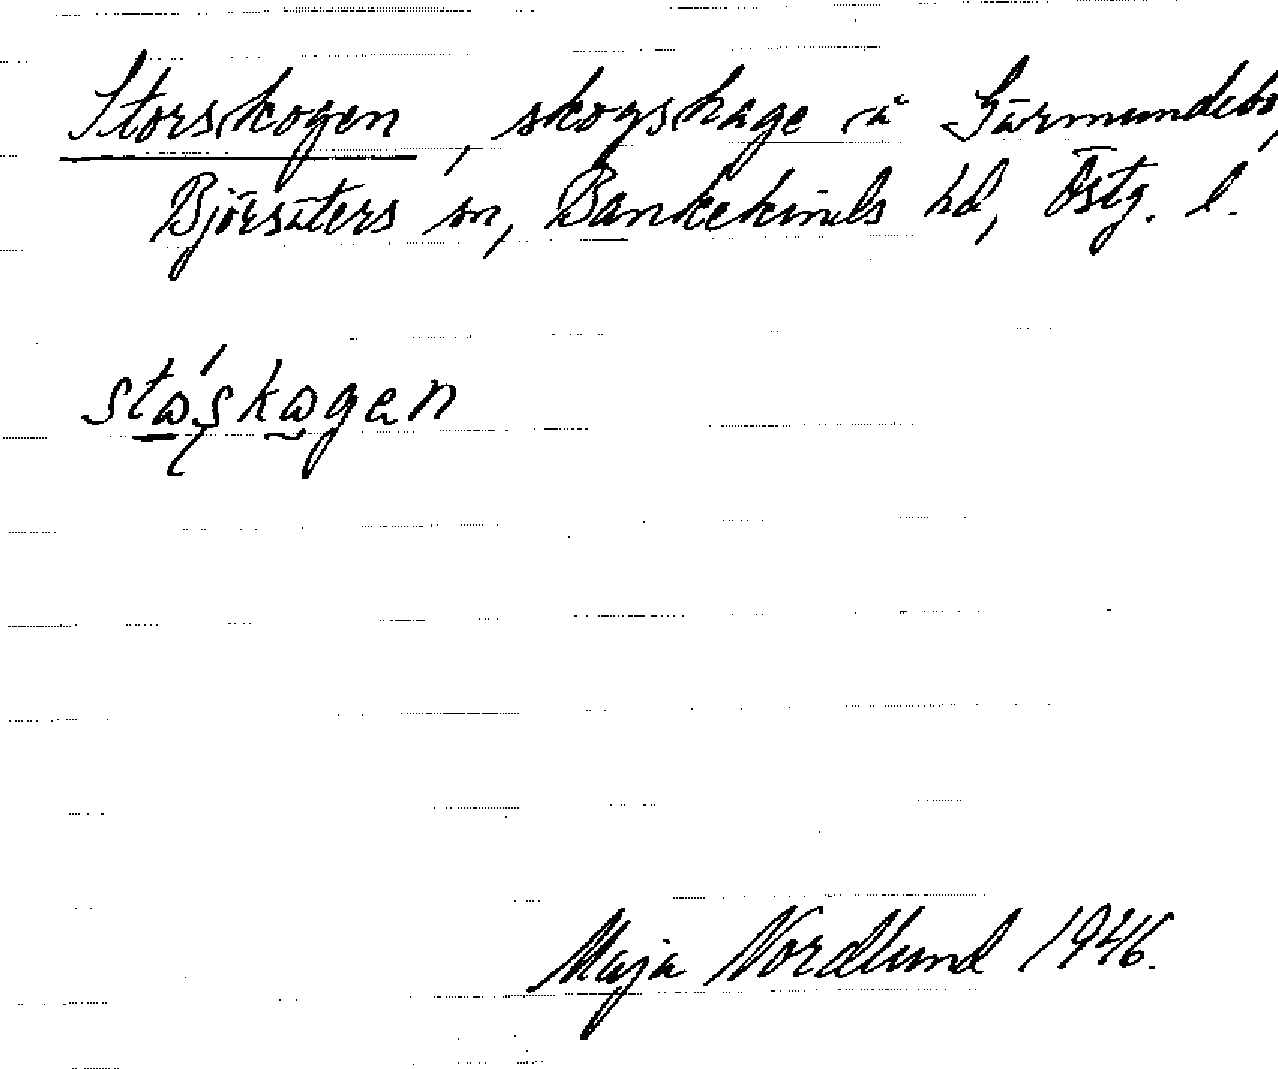 Storskogen, skogshage å Gärmundebo,
Björsäters sn, Bankekinds hd, Östg. l.
stɷ́ʂkɷgen
Maja Nordlund 1946.